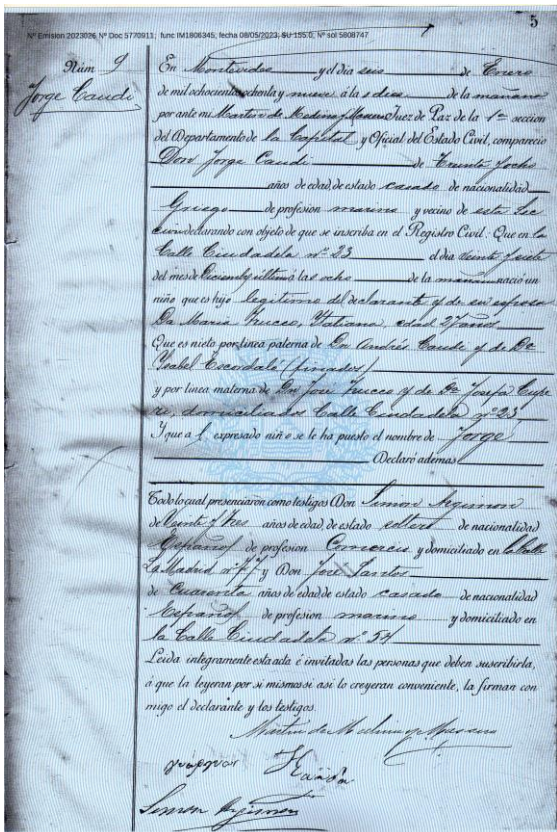 5
Nº Emision 2023026 Nº Doc 5770911; func IM1806345; fecha 08/05/2023, SU 155.0, Nº sol 5808747
Núm 9
Jorge Caudi
En Montevideo y el dia seis de Enero
de mil ochocientos ochenta y nueve á la s diez de la mañana
por ante mi Martin de Medina y Juez de Paz de la 1ª sección
del Departamento de la Capital y Oficial del Estado Civil, compareció
Don Jorge Caudi de treinta y ocho
años de edad, de estado casado de nacionalidad
Griego de profesion marino y vecino de esta Sec
cion declarando con objeto de que se inscriba en el Registro Civil: Que en la
Calle Ciudadela nº 23 el dia veinte y siete
del mes de Diciembre último á las ocho de la mañana nació un
niño que es hijo legitimo del declarante y de su esposa
Da Maria Trucco, Ytaliana, edad 27 años
Que es nieto por linea paterna de Dn Andrés Caudi y de Da
Ysabel Escordale (finados)
y por linea materna de Dn José Trucco y de Da Josefa
domiciliados Calle Ciudadela nº 23
Y que a l expresado niño se le ha puesto el nombre de Jorge
Declaró ademas
Todo lo cual presenciaron como testigos Don Simon Argimon
de Veinte y tres años de edad, de estado soltero de nacionalidad
Español de profesion Comercio y domiciliado en la Calle
La Madrid nº 77 y Don José Santos
de Cuarenta años de edad de estado casado de nacionalidad
Español de profesion marino y domiciliado en
la Calle Ciudadela nº 54
Leida integramente esta acta é invitadas las personas que deben suscribirla,
á que la leyeran por si mismos si asi lo creyeran conveniente, la firman con
migo el declarante y los testigos.
Martin de Medina y
Simon Argimon